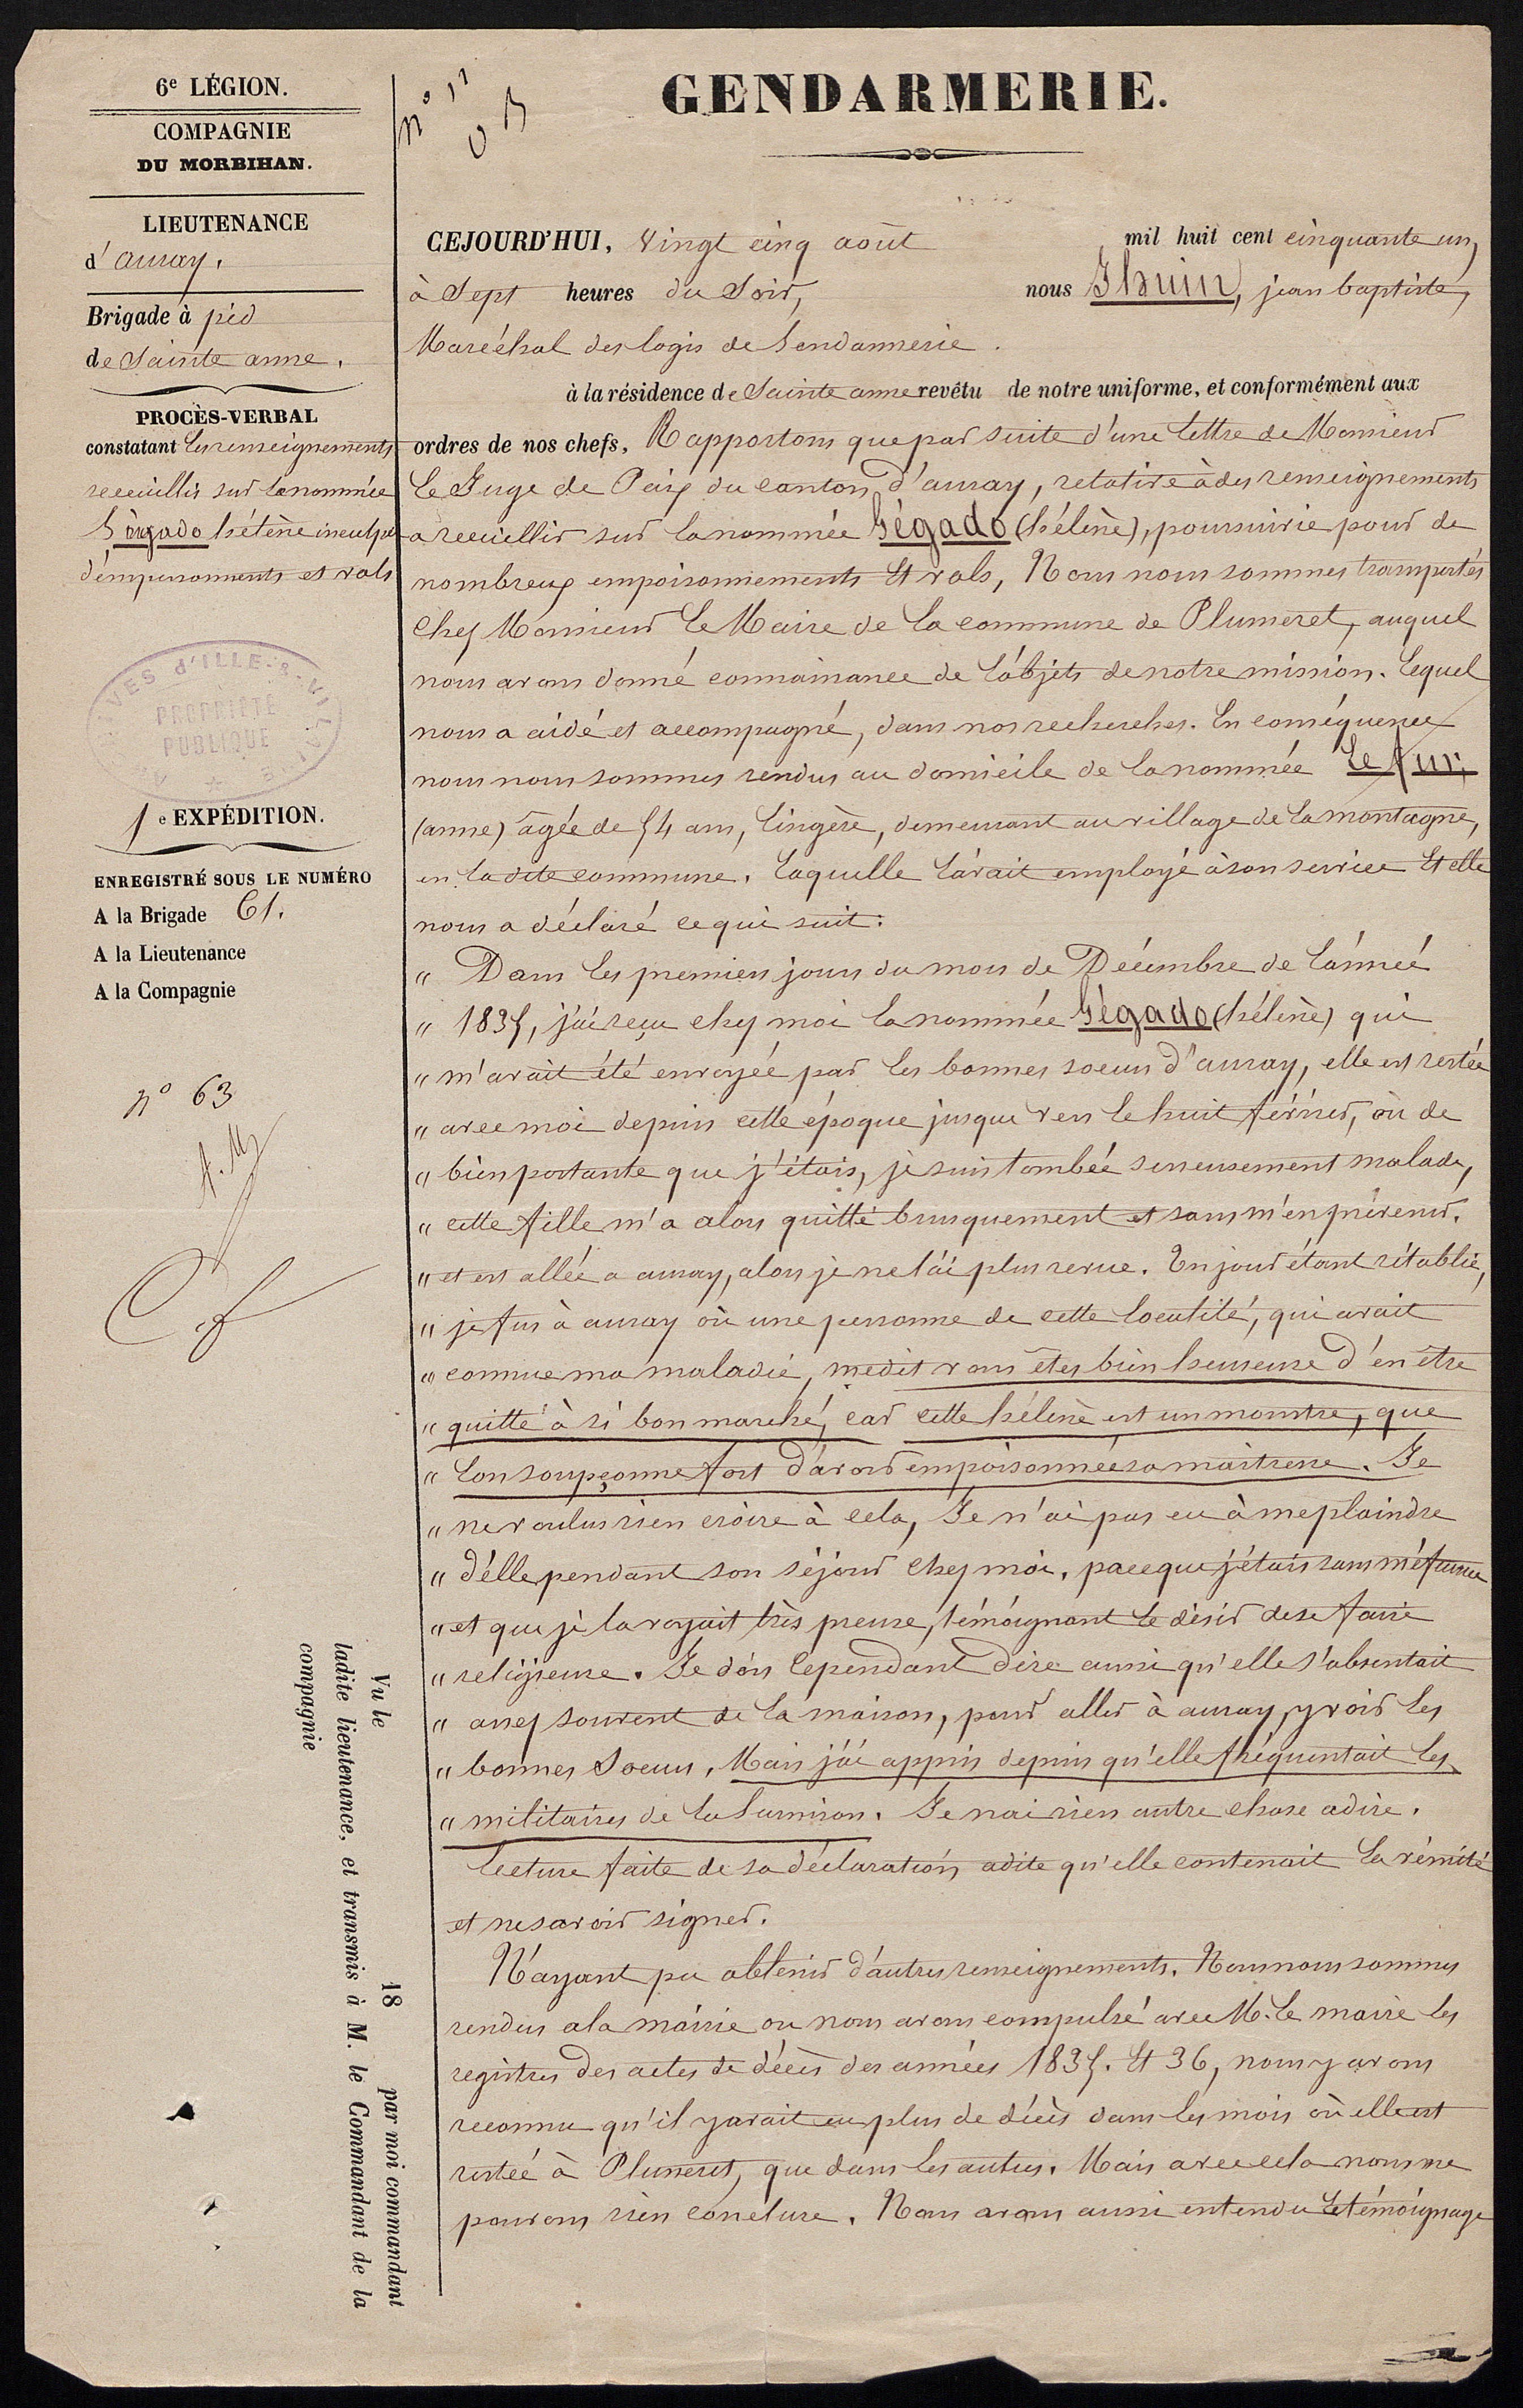 6e LÉGION.
COMPAGNIE
DU MORBIHAN.
LIEUTENANCE
d'auray.
Brigade à pied
de Sainte anne.
PROCÈS-VERBAL
constatant les renseignements
recueillis sur la nommée
Jégado hélène inculpée
d'empoisonnements et vols
ARCHIVES d'ILLE-&-VILAINE
PROPRIÉTÉ
PUBLIQUE
1e EXPÉDITION.
ENREGISTRÉ SOUS LE NUMÉRO
A la Brigade 61.
A la Lieutenance
A la Compagnie
n° 63
Vu le 18 par moi commandant
ladite lieutenance, et transmis à M. le Commandant de la
compagnie
n° 11
GENDARMERIE.
CEJOURD'HUI, Vingt cinq août mil huit cent cinquante un,
à Sept heures du Soir, nous Thuin, jean baptiste,
Maréchal des logis de Gendarmerie.
à la résidence de Sainte anne revêtu de notre uniforme, et conformément aux
ordres de nos chefs, Rapportons que par suite d'une lettre de Monsieur
le Juge de Paix du canton d'auray, relative à des renseignements
a recuillir sur la nommée Jégado (hélène), poursuivie pour de
nombreux empoisonnements Et vols, Nous nous sommes transportés
chez Monsieur Le Maire de la commune de Plumeret, auquel
nous avons donné connaissance de l'objets de notre mission. Lequel
nous a aidé et accompagné, dans nos recherches. En conséquence
nous nous sommes rendus au domicile de la nommée Le fur,
(anne) âgée de 54 ans, lingère, demeurant au village de la montagne,
en la dite commune. Laquelle l'avait employé à son service Et elle
nous a déclaré ce qui suit:
" Dans les premiers jours du mois de Décembre de l'année
" 1835, j'ai reçu chez moi la nommée Jégado (hélène) qui
" m'avait été envoyée par les bonnes soeurs d'auray, elle est restée
" avec moi depuis cette époque jusque vers le huit février, où de
" bien portante que j'étais, je suis tombée serieusement malade,
" cette fille m'a alors quitté brusquement et sans m'en prévenir.
" et est allée a auray, alors je ne l'ai plus revue. Un jour étant rétablie,
" je fus à auray où une personne de cette localité, qui avait
" connue ma maladie, me dit vous êtes bien heureuse d'en être
" quitte à si bon marché, car cette hélène est un monstre, que
" l'on soupçonne fort d'avoir empoisonnée sa maitresse. Je
" ne voulus rien croire à cela, Je n'ai pas eu à me plaindre
" d'elle pendant son séjour chez moi, paceque j'étais sans méfiance
" et que je la voyait très pieuse, témoignant le désir de se faire
" religieuse. Je dois Cependant dire aussi qu'elle s'absentait
" assez souvent de la maison, pour aller à auray, y voir les
" bonnes Soeurs, Mais j'ai appris depuis qu'elle fréquentait les
" militaires de la Garnison. Je nai rien autre chose a dire.
Lecture faite de sa déclaration, a dite qu'elle contenait la vérité
et ne savoir signer.
N'ayant pu obtenir d'autres renseignements. Nous nous sommes
rendus a la mairie ou nous avons compulsé avec M. le maire les
registres des actes de décès des années 1835. Et 36, nous y avons
reconnu qu'il y avait eu plus de décès dans les mois où elle est
restée à Plumeret, que dans les autres. Mais avec cela nous ne
pouvons rien conclure. Nous avons aussi entendu Le témoignage